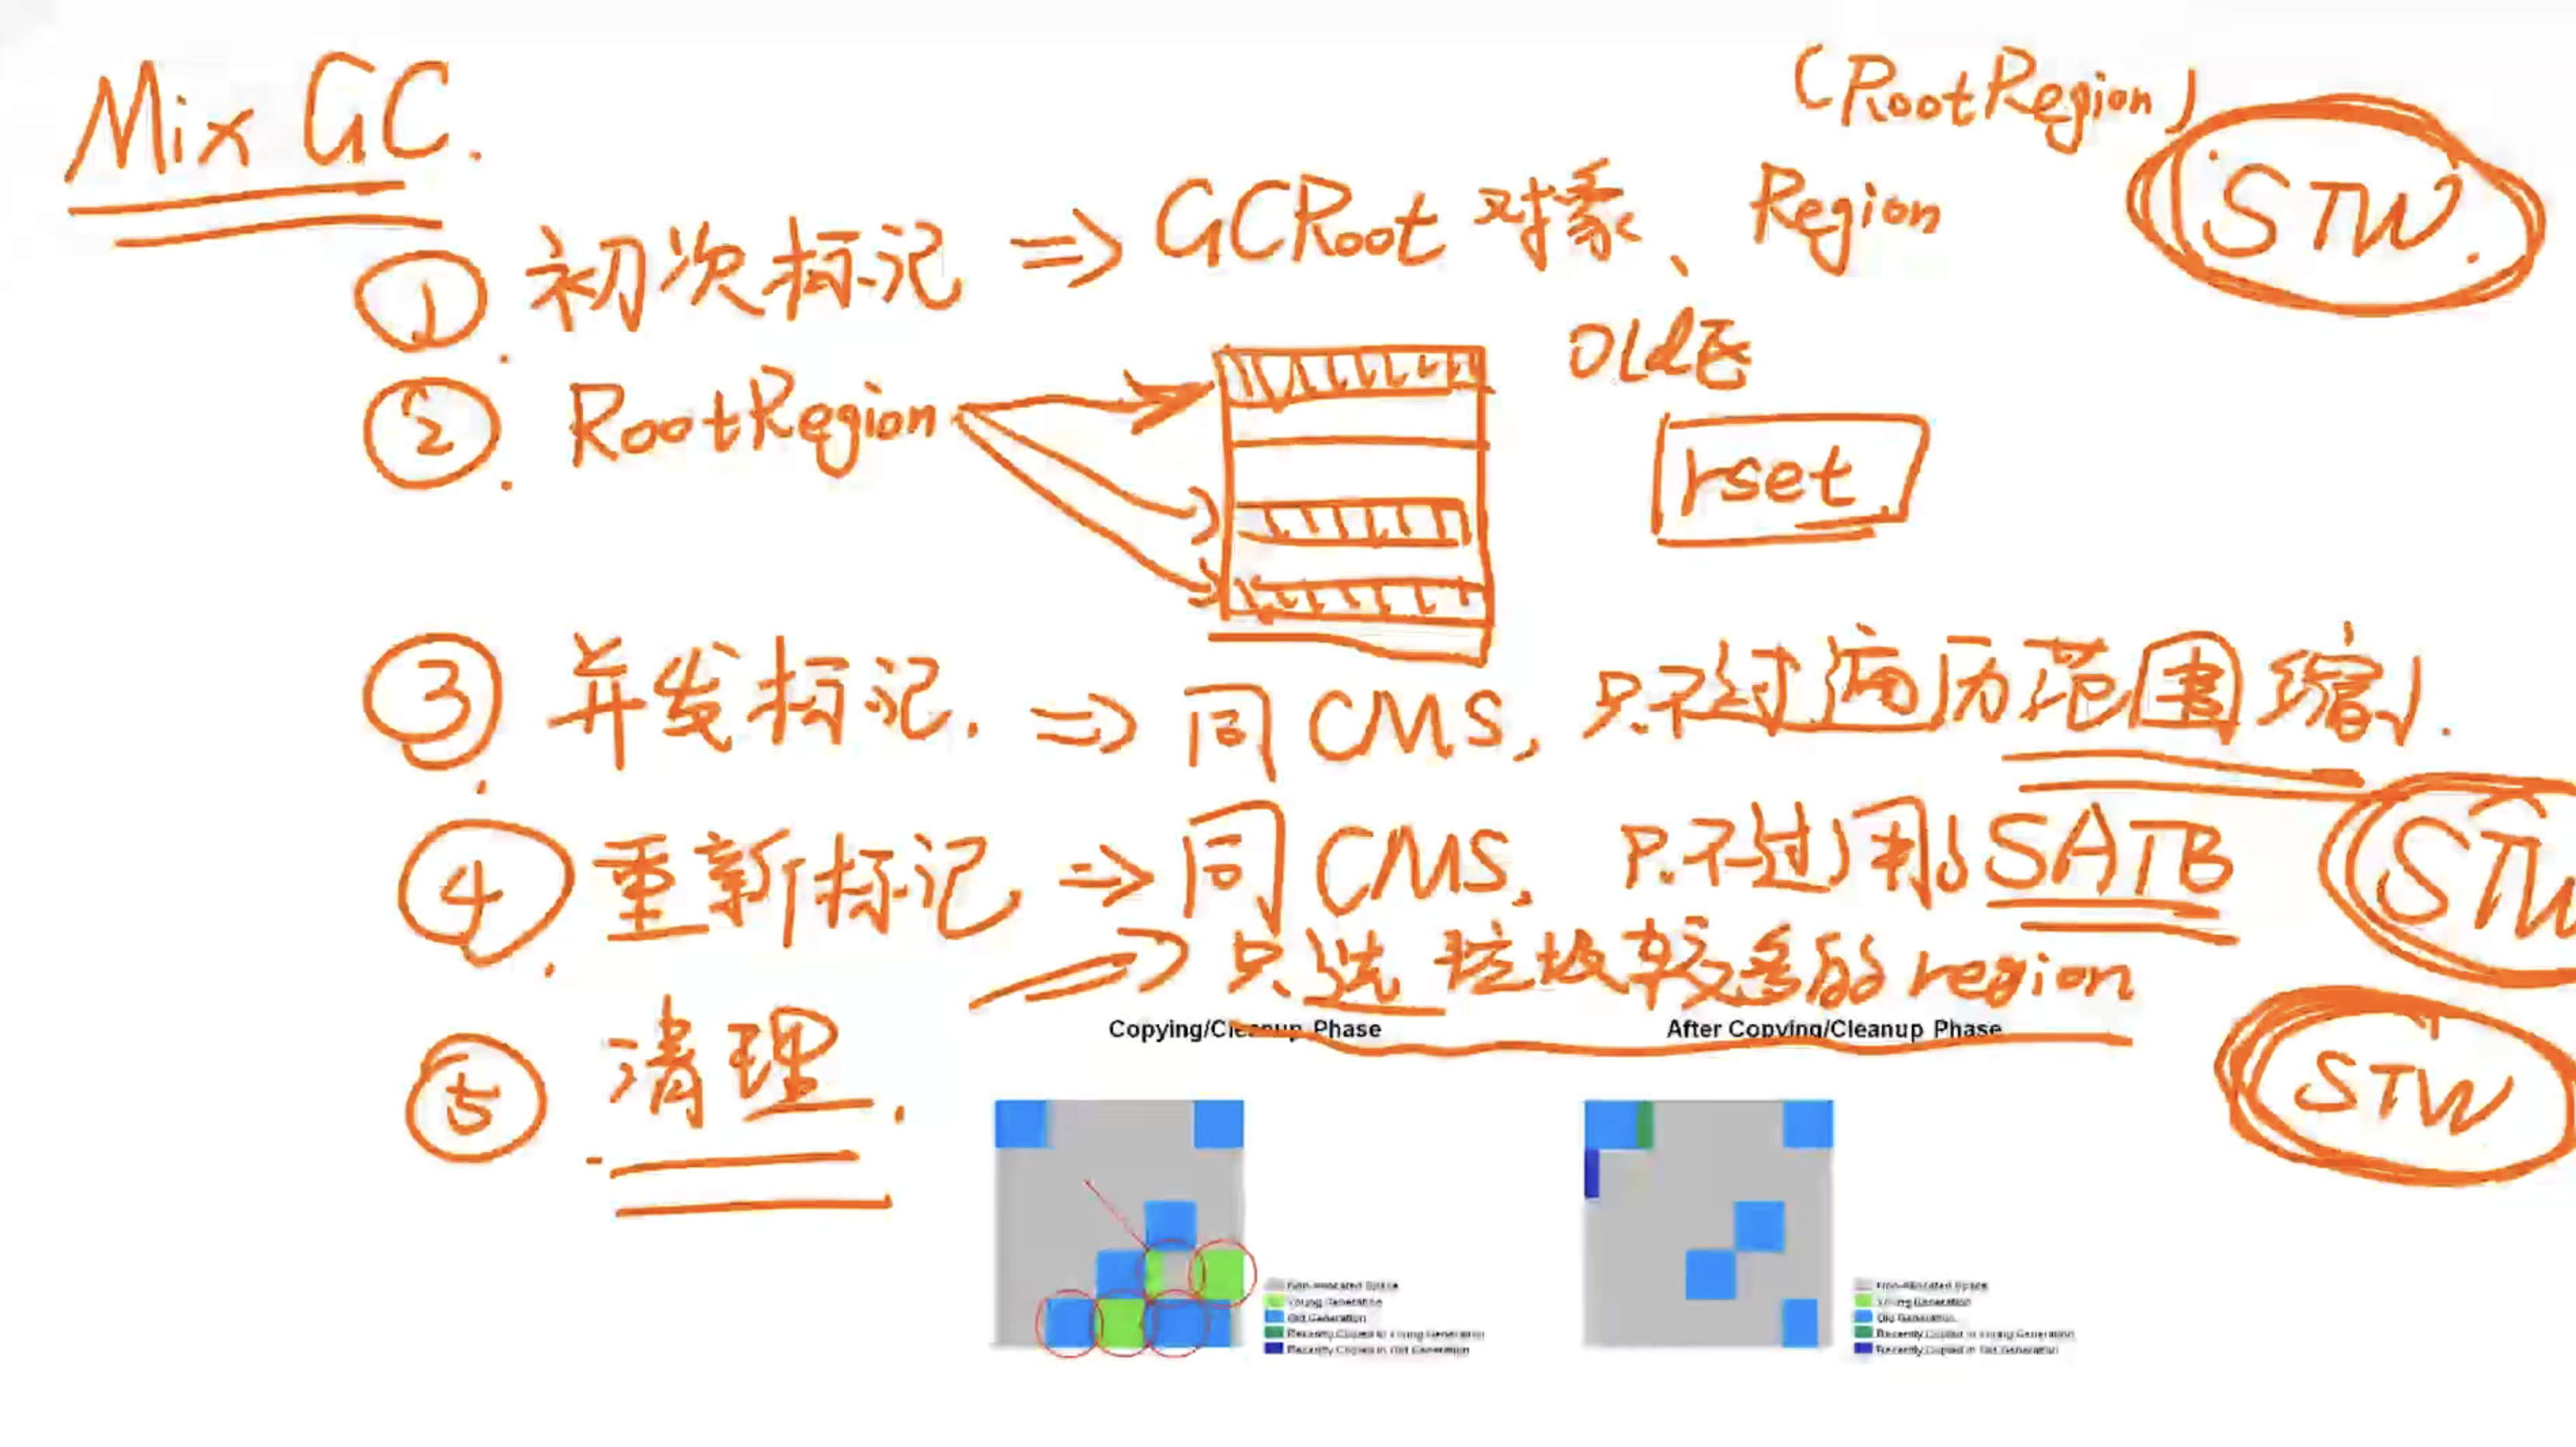 Mix GC.
(RootRegion)
STW.
① 初次标记 => GCRoot 对象、Region
② RootRegion
Old区
rset
③ 并发标记. => 同CMS, 只不过遍历范围缩小.
④ 重新标记 => 同CMS, 只不过用了SATB
STW
⑤ 清理. => 只选垃圾较多的region
STW
Copying/Cleanup Phase
After Copying/Cleanup Phase
Non-Allocated Space
Young Generation
Old Generation
Recently Copied in Young Generation
Recently Copied in Old Generation
Non-Allocated Space
Young Generation
Old Generation
Recently Copied in Young Generation
Recently Copied in Old Generation